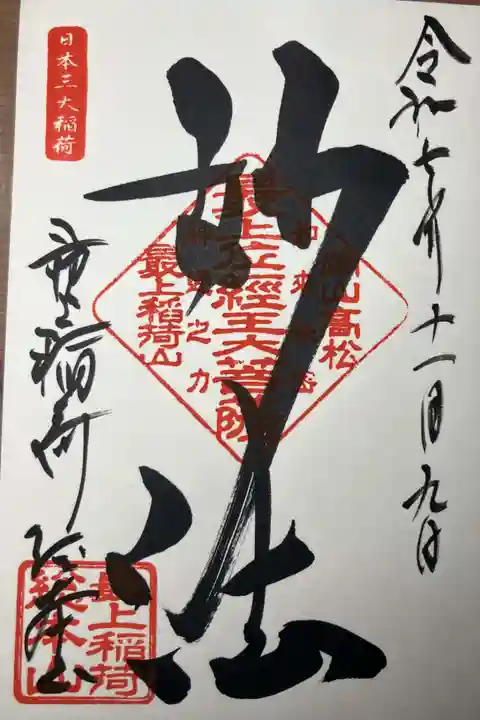 令和七年十一月九日
妙法
日本三大稲荷
最上稲荷総本山
最上位經王大菩薩
髙松
最上稲荷山
之力
最上稲荷
總本山